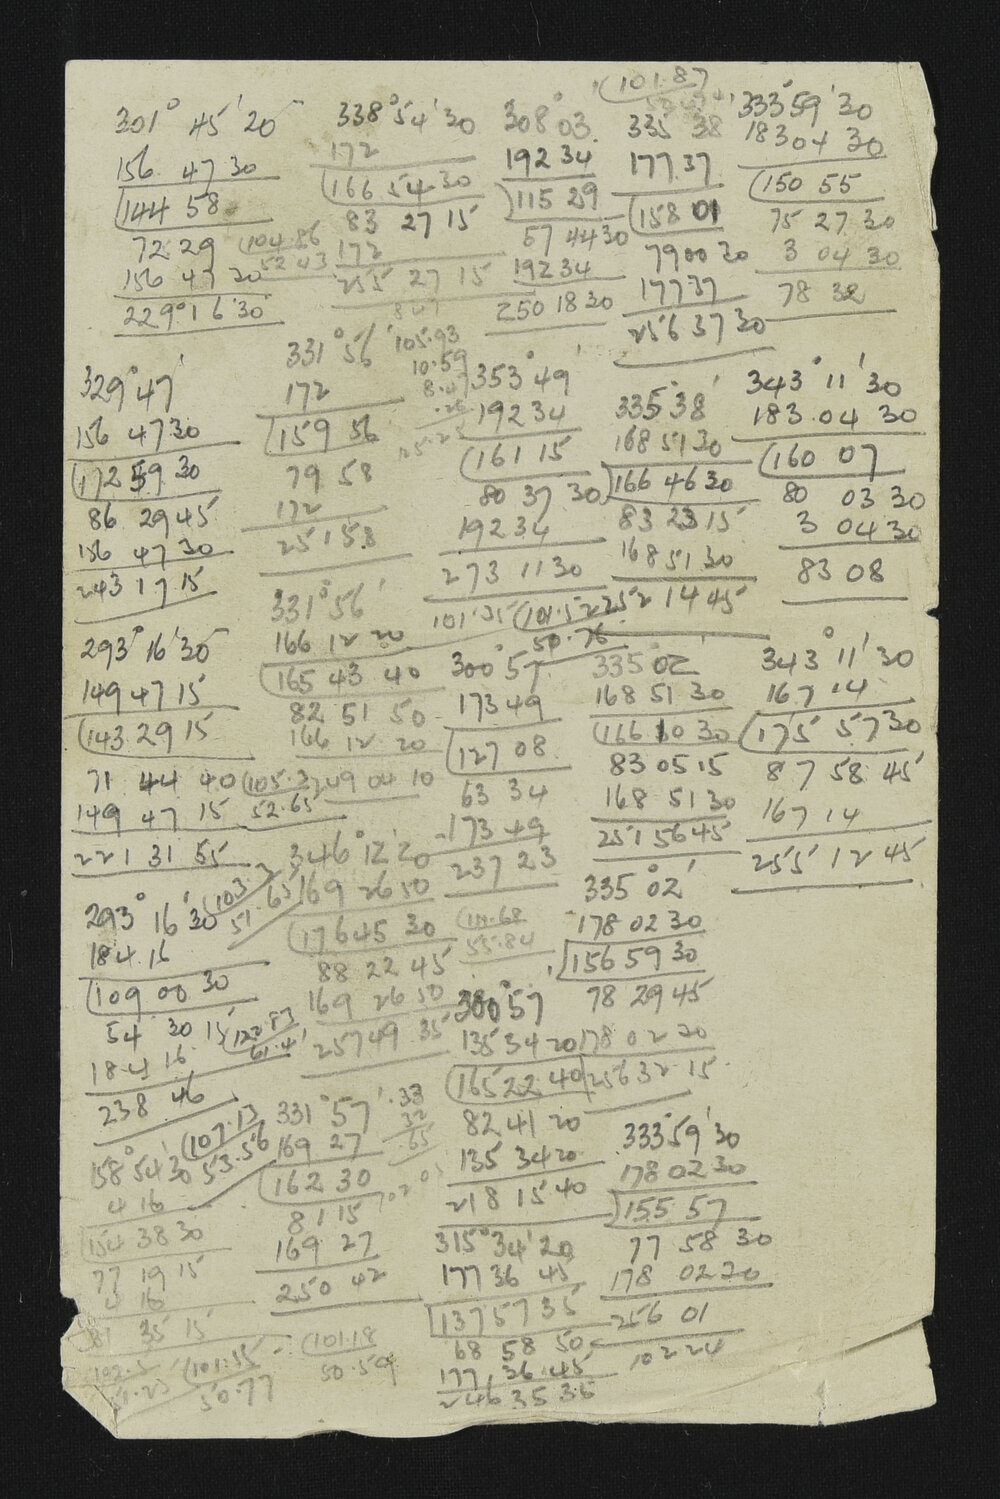 301° 45' 20"
156 47 30
144 58
72 29
156 47 30
229° 16 30
104.86
52 43
329° 47'
156 47 30
172 59 30
86 29 45
156 47 30
243 17 15
293° 16' 30"
149 47 15
143 29 15
71 44 40
149 47 15
221 31 55
105.3
52.65
293° 16' 30
184 16
109 00 30
54 30 15
184 16
238 46
103.3
51.65
122.83
61.41
158° 54' 30
4 16
154 38 30
77 19 15
4 16
81 35 15
107.13
53.56
101.55
50.77
338° 54' 30
172
166 54 30
83 27 15
172
255 27 15
331° 56'
172
159 56
79 58
172
251 58
105.93
10.59
8.47
331° 56'
166 12 20
165 43 40
82 51 50
166 12 20
249 04 10
346° 12' 20
169 26 50
176 45 30
88 22 45
169 26 50
257 49 35
331° 57'
169 27
162 30
81 15
169 27
250 42
.33
32
65
101.18
50.59
308° 03
192 34
115 29
57 44 30
192 34
250 18 30
353° 49'
192 34
161 15
80 37 30
192 34
273 11 30
101.52
50.76
300° 57'
173 49
127 08
63 34
173 49
237 23
111.68
55.84
300° 57
135 34 20
165 22 40
82 41 20
135 34 20
218 15 40
315° 34' 20
177 36 45
137 57 35
68 58 50
177 36 45
246 35 35
101.87
335 38
177 37
158 01
79 00 30
177 37
256 37 30
335° 38'
168 51 30
166 46 30
83 23 15
168 51 30
252 14 45
335° 02'
168 51 30
166 10 30
83 05 15
168 51 30
251 56 45
335° 02'
178 02 30
156 59 30
78 29 45
178 02 30
256 32 15
333° 59' 30
178 02 30
155 57
77 58 30
178 02 30
256 01
102 24
333° 59' 30
183 04 30
150 55
75 27 30
3 04 30
78 32
343° 11' 30
183 04 30
160 07
80 03 30
3 04 30
83 08
343° 11' 30
167 14
175 57 30
87 58 45
167 14
255 12 45